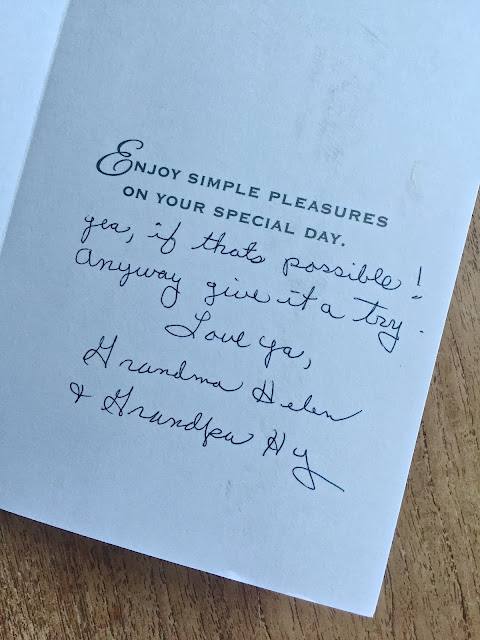 ENJOY SIMPLE PLEASURES
ON YOUR SPECIAL DAY.
yea, if thats possible!
Anyway give it a try.
Love ya,
Grandma Helen
& Grandpa Hy